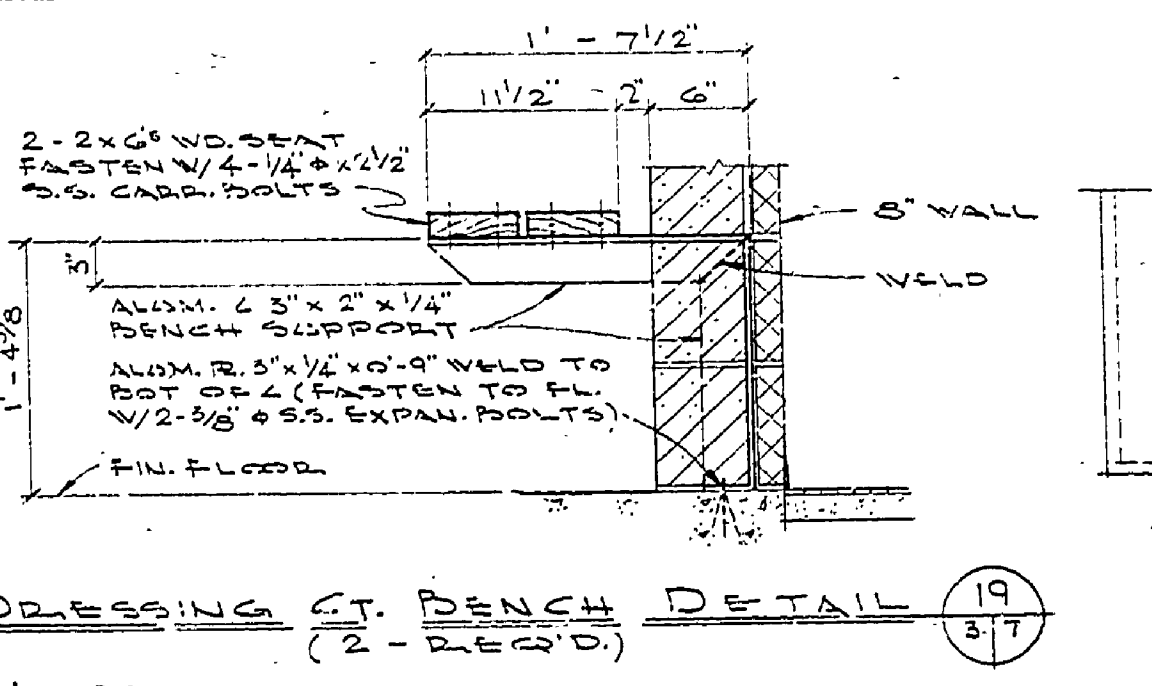 1' - 7 1/2"
11 1/2" - 2" 6"
2 - 2 x 6's WD. SEAT
FASTEN W/ 4 - 1/4" φ x 2 1/2"
S.S. CARR. BOLTS
8" WALL
3"
WELD
ALUM. ∠ 3" x 2" x 1/4"
BENCH SUPPORT
1' - 4 3/8
ALUM. PL. 3" x 1/4" x 0'-9" WELD TO
BOT OF ∠ (FASTEN TO FL.
W/ 2 - 3/8" φ S.S. EXPAN. BOLTS)
FIN. FLOOR
DRESSING C.T. BENCH DETAIL
(2 - REQ'D.)
19
3 7